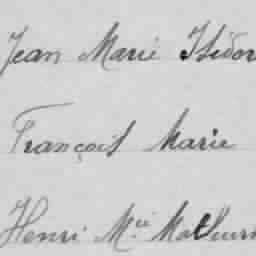 Jean Marie Isidor
François Marie
Henri Mie Mathurin